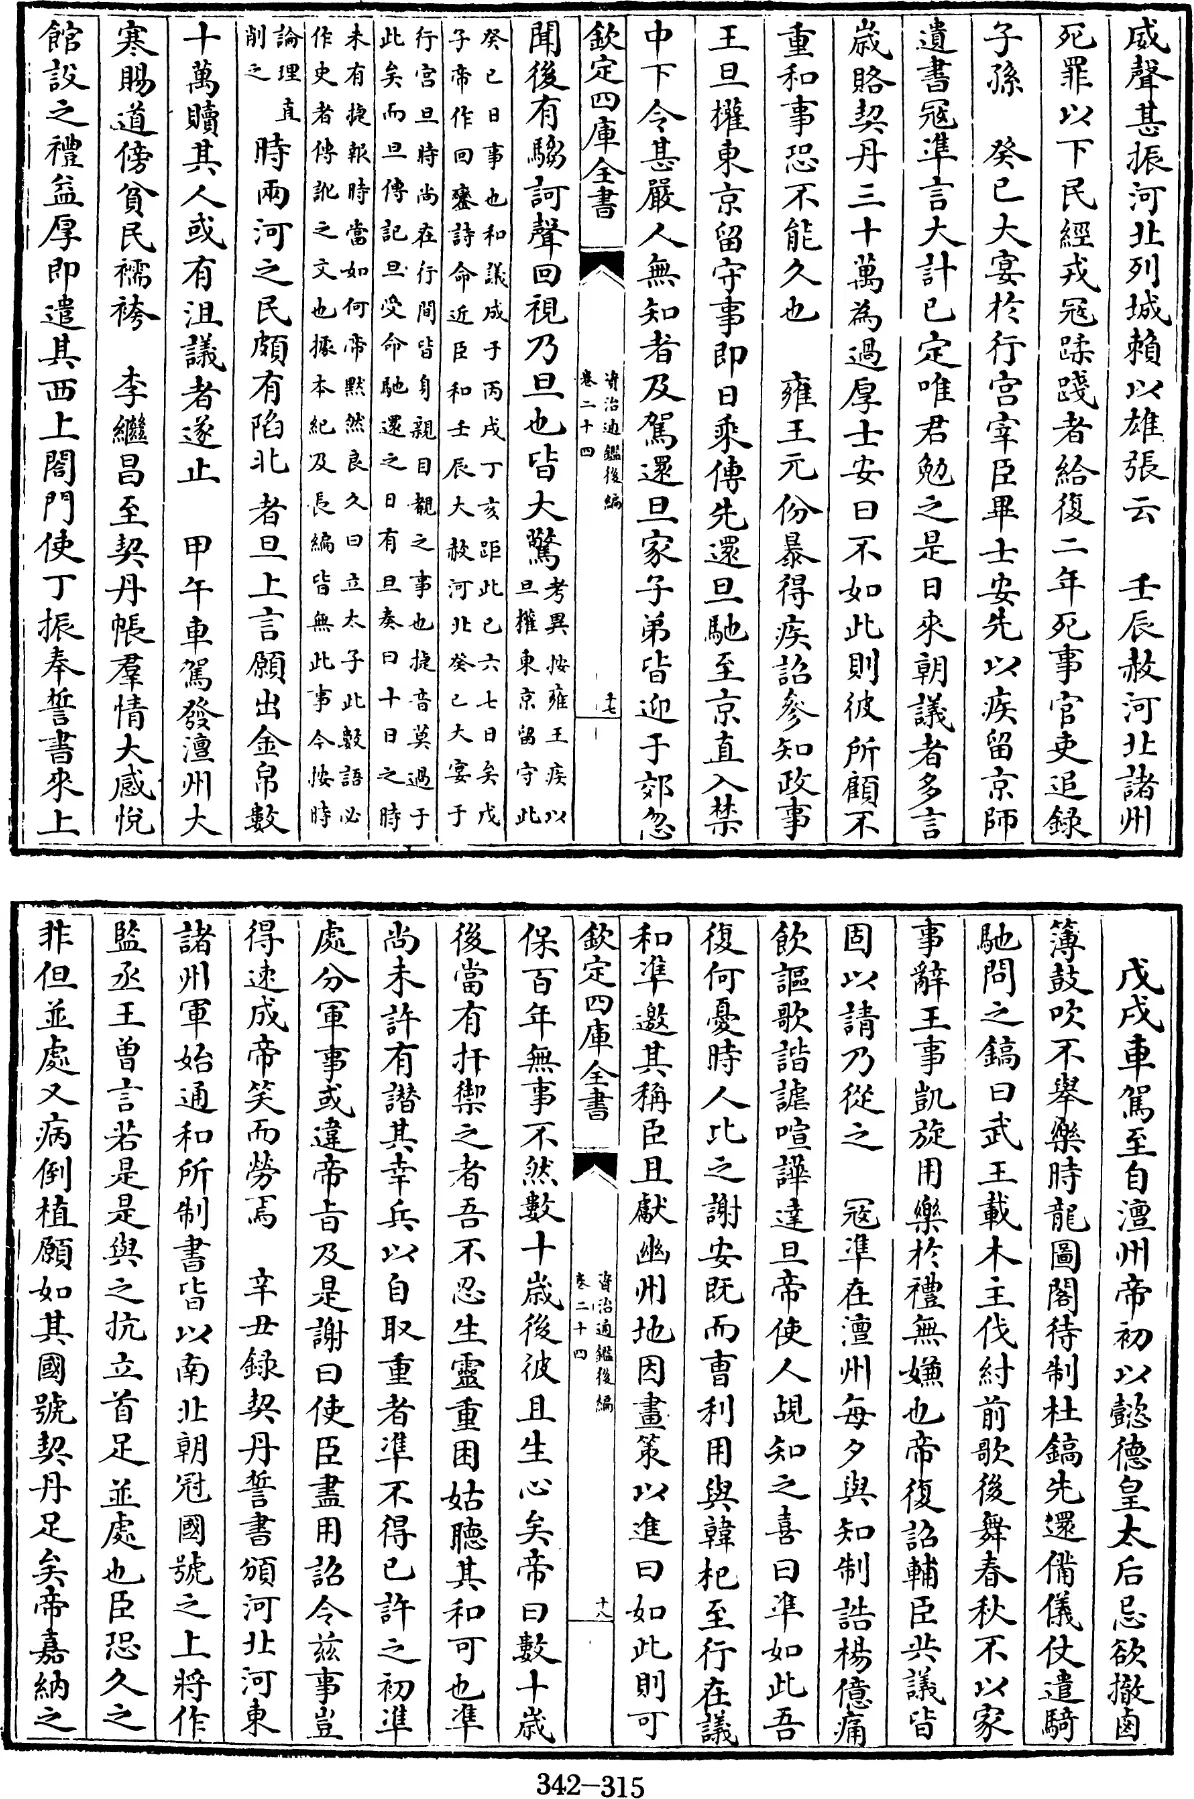 威聲甚振河北列城賴以雄張云　壬辰赦河北諸州
死罪以下民經戎冦蹂踐者給復二年死事官吏追錄
子孫　癸巳大宴於行宫宰臣畢士安先以疾留京師
遺書冦準言大計已定唯君勉之是日來朝議者多言
嵗賂契丹三十萬為過厚士安曰不如此則彼所顧不
重和事恐不能久也　雍王元份暴得疾詔參知政事
王旦權東京留守事即日乘傳先還旦馳至京直入禁
中下令甚嚴人無知者及駕還旦家子弟皆迎于郊忽
欽定四庫全書
資治通鑑後編
卷二十四
十七
聞後有騶訶聲回視乃旦也皆大驚考異按雍王疾以
旦權東京留守此
癸巳日事也和議成于丙戌丁亥距此已六七日矣戊
子帝作回鑾詩命近臣和壬辰大赦河北癸巳大宴于
行宫旦時尚在行間皆身親目覩之事也捷音莫過于
此矣而旦傳記旦受命馳還之日有旦奏曰十日之時
未有捷報時當如何帝默然良久曰立太子此數語必
作史者傳訛之文也據本紀及長編皆無此事今按時
論理直
削之　時兩河之民頗有陷北者旦上言願出金帛數
十萬贖其人或有沮議者遂止　甲午車駕發澶州大
寒賜道傍貧民襦袴　李繼昌至契丹帳羣情大感悅
館設之禮益厚即遣其西上閤門使丁振奉誓書來上
戊戌車駕至自澶州帝初以懿德皇太后忌欲撤鹵
簿鼓吹不舉樂時龍圖閣待制杜鎬先還備儀仗遣騎
馳問之鎬曰武王載木主伐紂前歌後舞春秋不以家
事辭王事凱旋用樂於禮無嫌也帝復詔輔臣共議皆
固以請乃從之　冦準在澶州每夕與知制誥楊億痛
飲謳歌諧謔喧譁達旦帝使人覘知之喜曰準如此吾
復何憂時人比之謝安既而曹利用與韓杞至行在議
和準邀其稱臣且獻幽州地因畫策以進曰如此則可
欽定四庫全書
資治通鑑後編
卷二十四
十八
保百年無事不然數十嵗後彼且生心矣帝曰數十嵗
後當有扞禦之者吾不忍生靈重困姑聽其和可也準
尚未許有譖其幸兵以自取重者準不得已許之初準
處分軍事或違帝旨及是謝曰使臣盡用詔令兹事豈
得速成帝笑而勞焉　辛丑錄契丹誓書頒河北河東
諸州軍始通和所制書皆以南北朝冠國號之上將作
監丞王曾言若是是與之抗立首足並處也臣恐久之
非但並處又病倒植願如其國號契丹足矣帝嘉納之
342-315